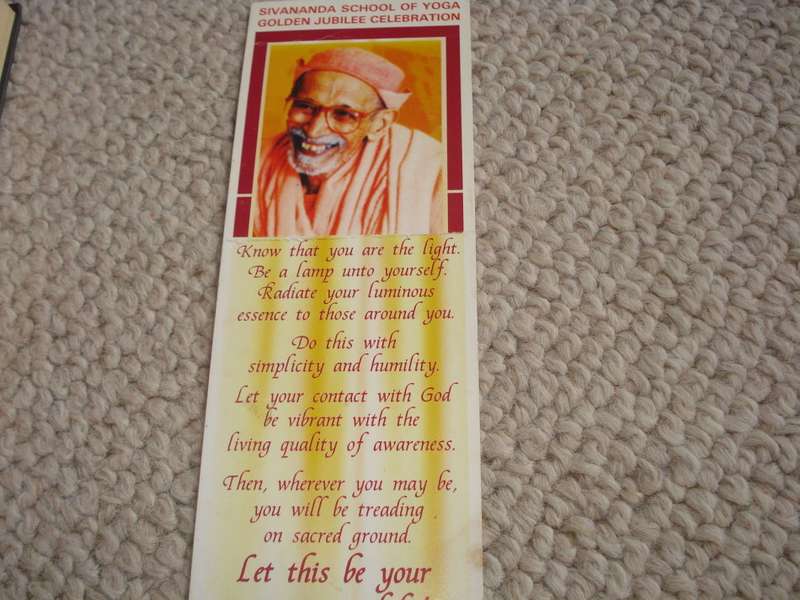 SIVANANDA SCHOOL OF YOGA
GOLDEN JUBILEE CELEBRATION
Know that you are the light.
Be a lamp unto yourself.
Radiate your luminous
essence to those around you.
Do this with
simplicity and humility.
Let your contact with God
be vibrant with the
living quality of awareness.
Then, wherever you may be,
you will be treading
on sacred ground.
Let this be your